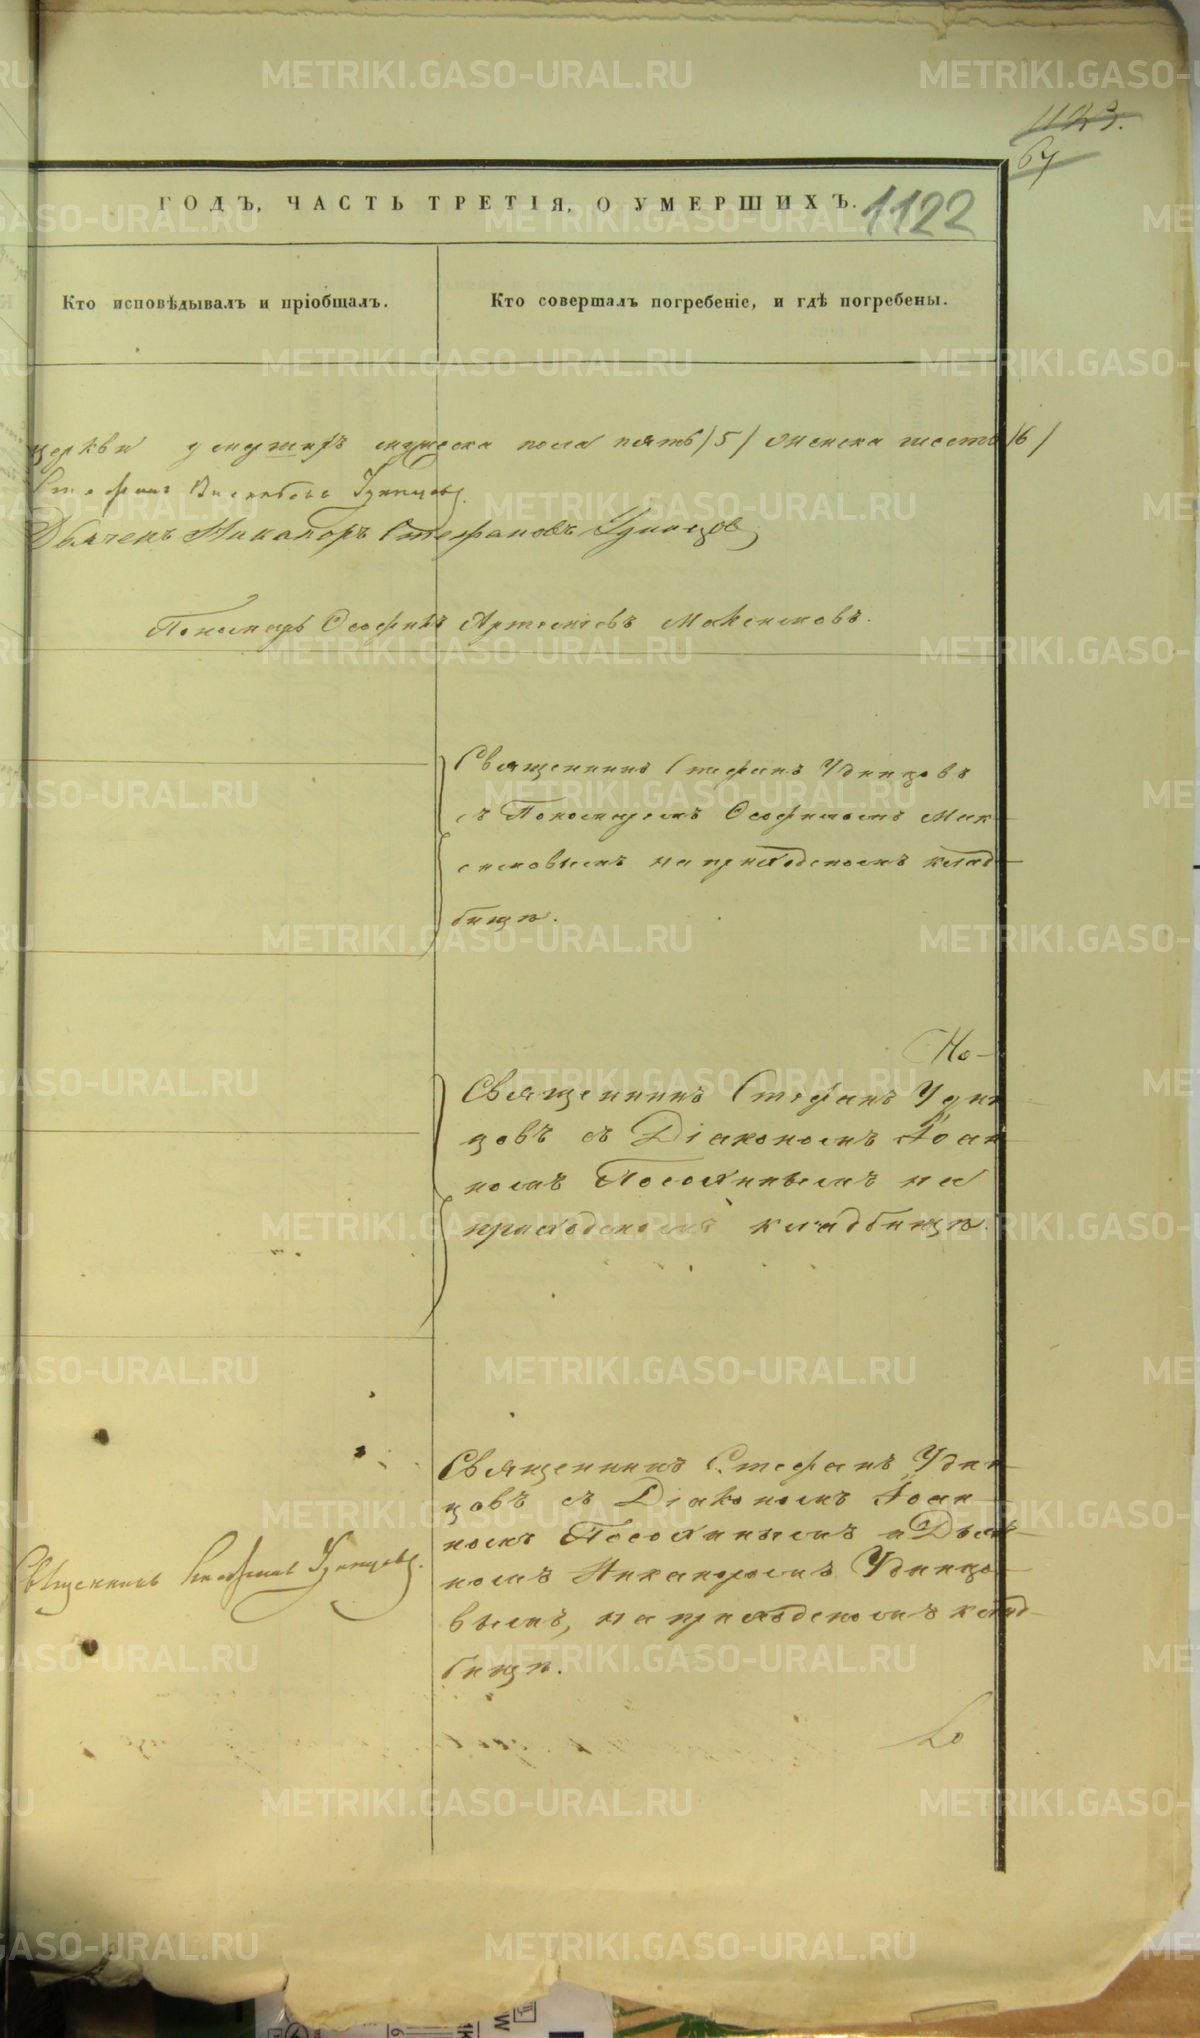 1123.
67
ГОДЪ, ЧАСТЬ ТРЕТІЯ, О УМЕРШИХЪ.
1122
Кто исповѣдывалъ и пріобщалъ.
Кто совершалъ погребеніе, и гдѣ погребены.
церкви умершихъ мужеска пола пять /5/ женска шесть /6/
Стефанъ Удинцовъ.
Дьячекъ Никаноръ Стефановъ Удинцовъ
Пономарь Ософилъ Артемьевъ Максимовъ.
Священникъ Стефанъ Удинцовъ
съ Пономаремъ Ософиломъ Мак-
симовымъ на приходскомъ клад-
бищѣ.
Но-
Священникъ Стефанъ Удин-
цовъ съ Діакономъ Іоан-
номъ на
приходскомъ кладбищѣ.
Священникъ Стефанъ Удинцовъ.
Священникъ Стефанъ Удин-
цовъ съ Діакономъ Іоан-
номъ и Дьяч-
комъ Никаноромъ Удинцо-
вымъ, на приходскомъ клад-
бищѣ.
METRIKI.GASO-URAL.RU